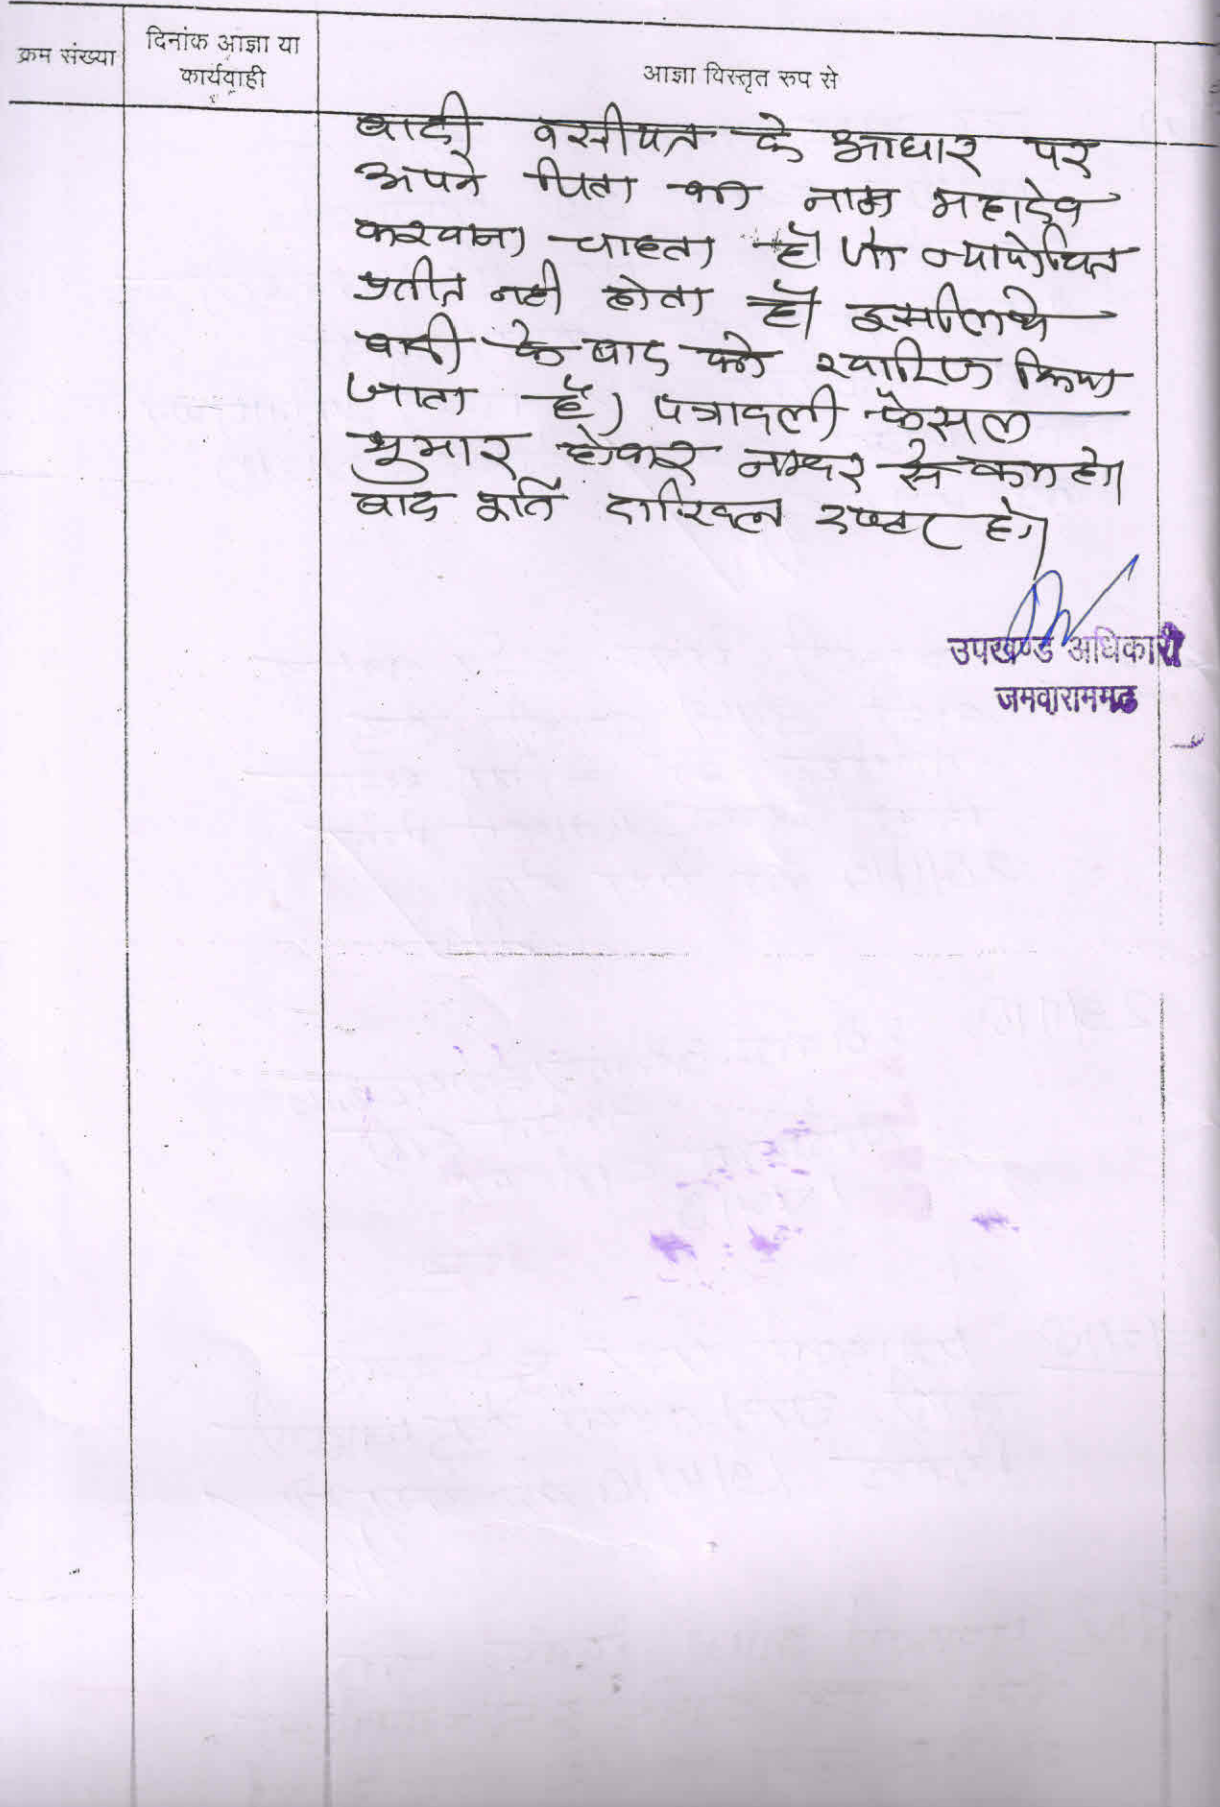 क्रम संख्या
दिनांक आज्ञा या
कार्यवाही
आज्ञा विस्तृत रूप से
वादी वसीयत के आधार पर
अपने पिता का नाम महादेव
करवाना चाहता है जो न्यायोचित
प्रतीत नही होता है इसलिये
वादी के वाद को खारिज किया
जाता है। पत्रावली फैसल
शुमार होकर नम्बर से कम हो।
बाद पूर्ति दाखिल दफ्तर हो।
उपखण्ड अधिकारी
जमवारामगढ